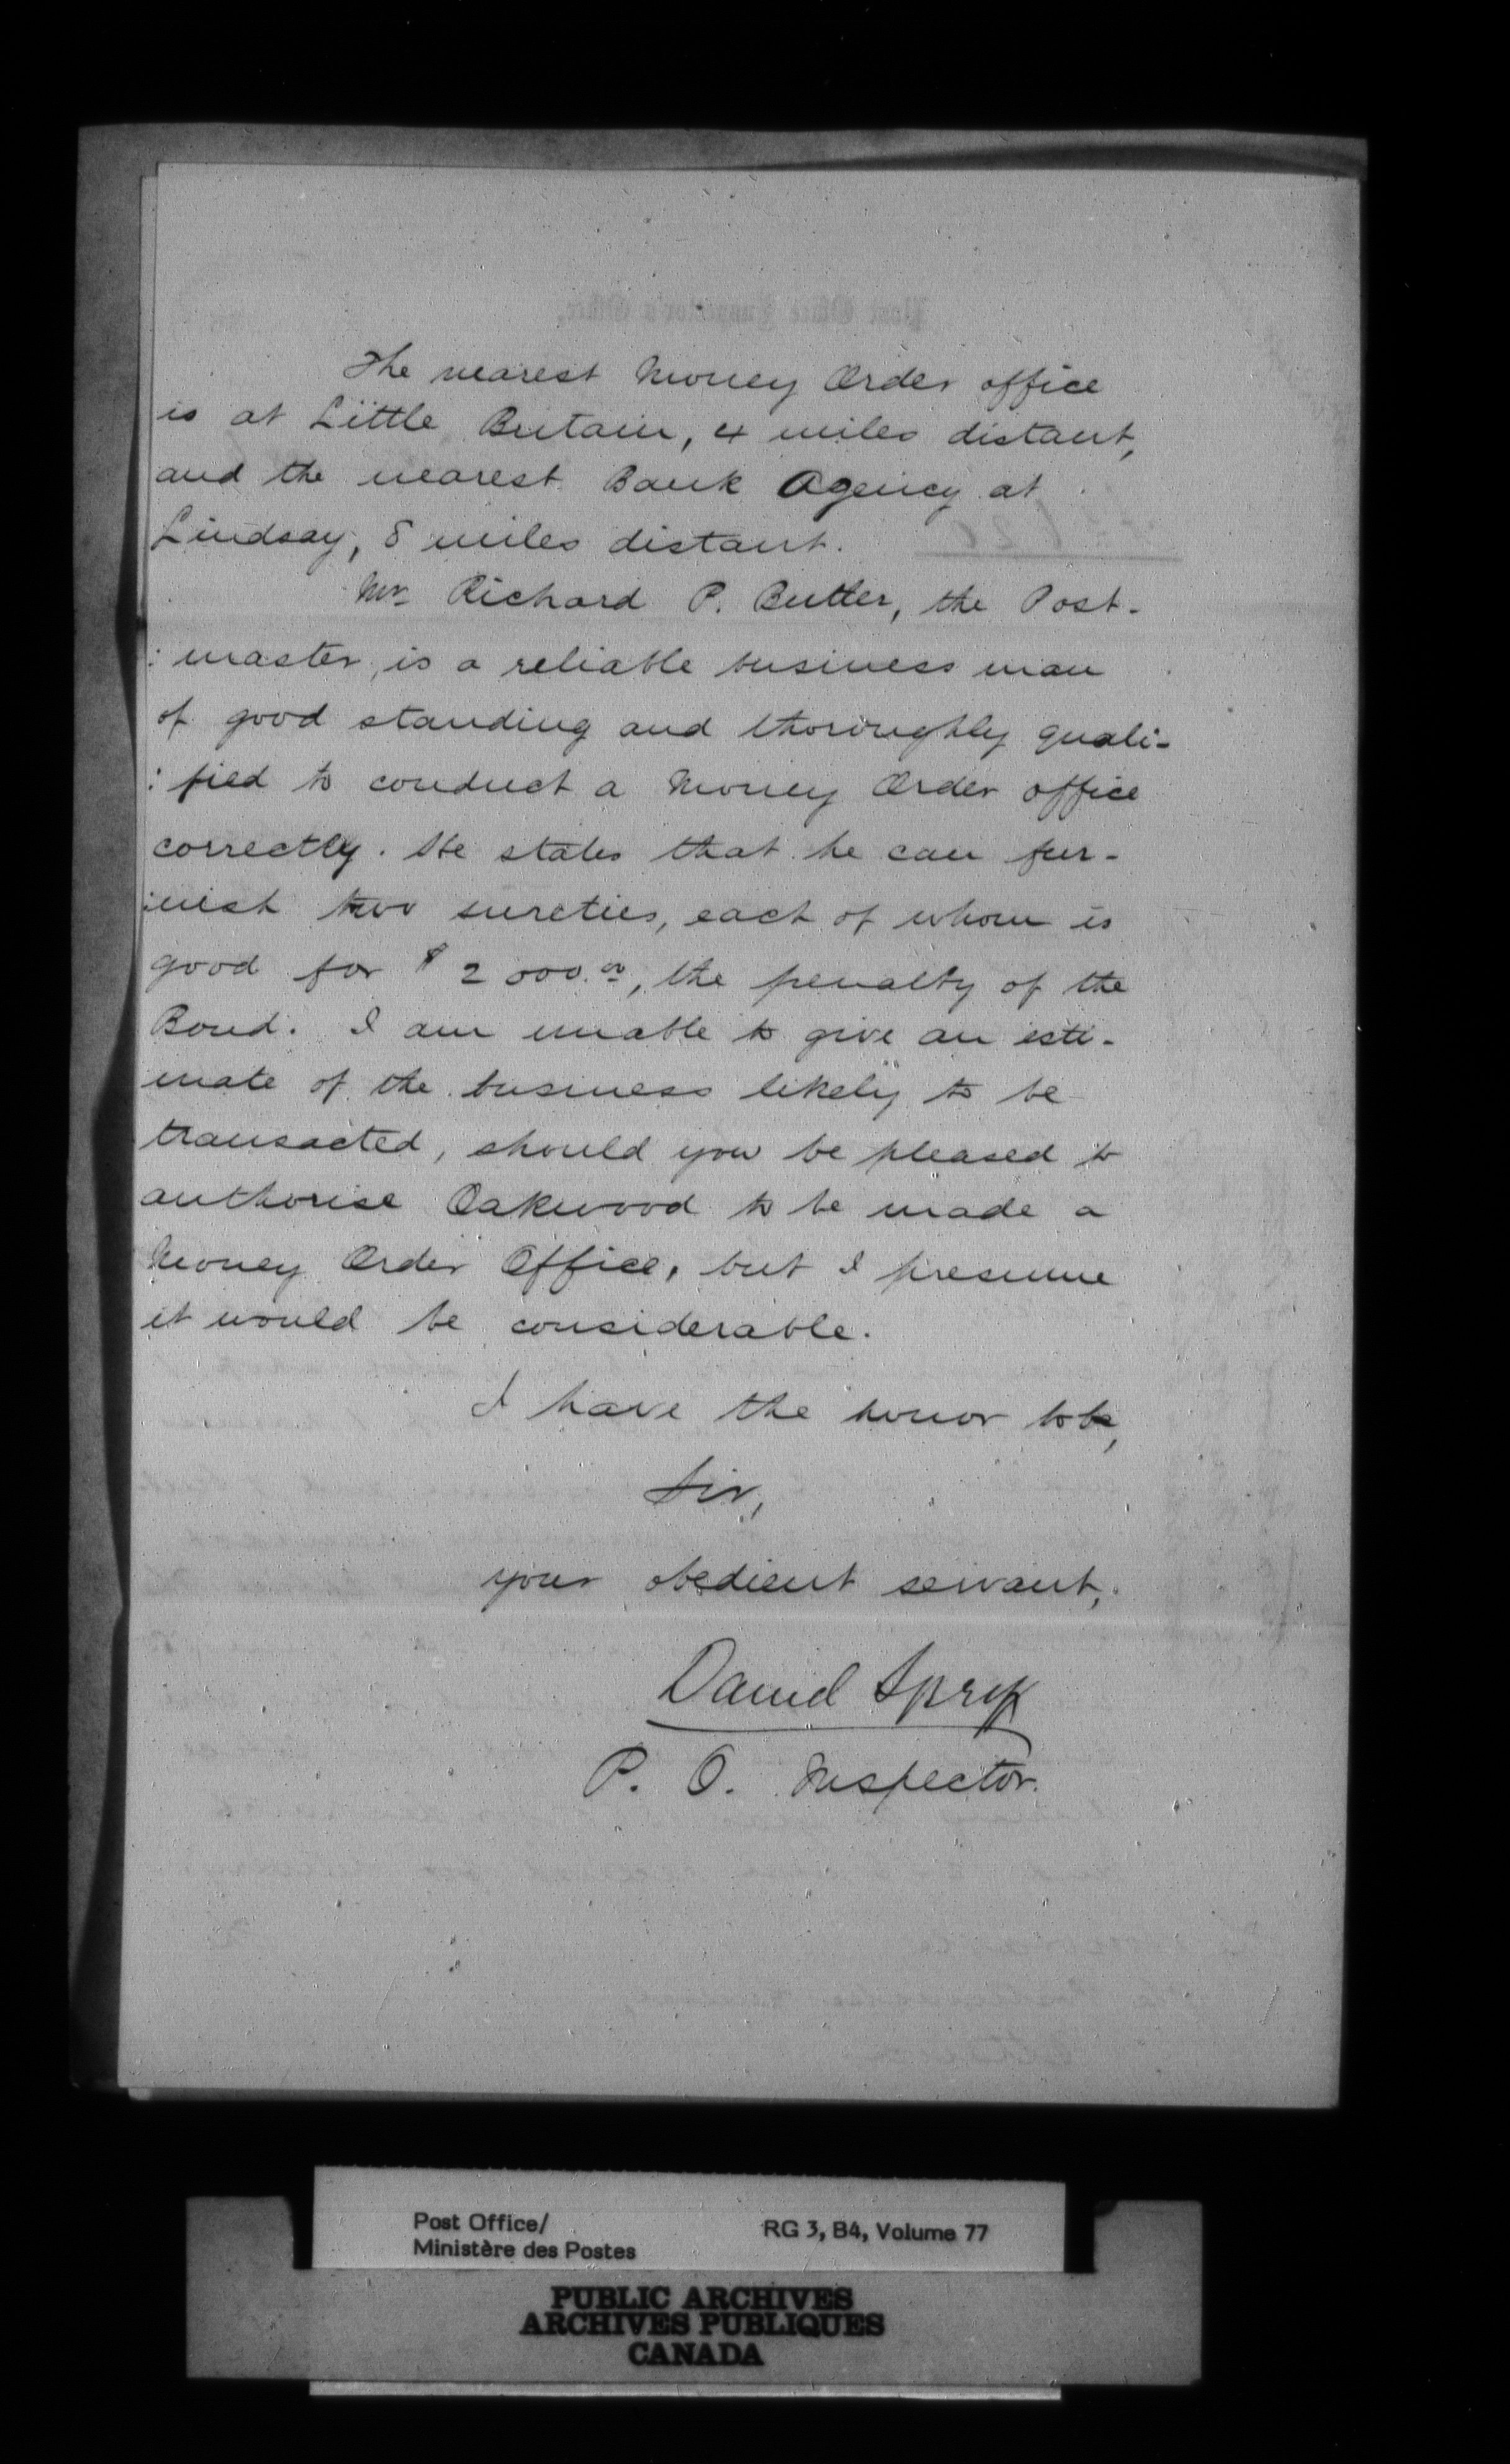 The nearest Money Order office
is at Little Britain, 4 miles distant,
and the nearest Bank Agency at
Lindsay, 8 miles distant.
Mr. Richard P. Butler, the Post-
: master, is a reliable business man
of good standing and thoroughly quali-
: fied to conduct a Money Order office
correctly. He states that he can fur-
: nish two sureties, each of whom is
good for $2000.00, the penalty of the
Bond. I am unable to give an esti-
mate of the business likely to be
transacted, should you be pleased to
authorise Oakwood to be made a
Money Order Office, but I presume
it would be considerable.
I have the honor to be,
Sir,
your obedient servant,
David
P. O. Inspector.
Post Office/
Ministère des Postes
RG 3, B4, Volume 77
PUBLIC ARCHIVES
ARCHIVES PUBLIQUES
CANADA